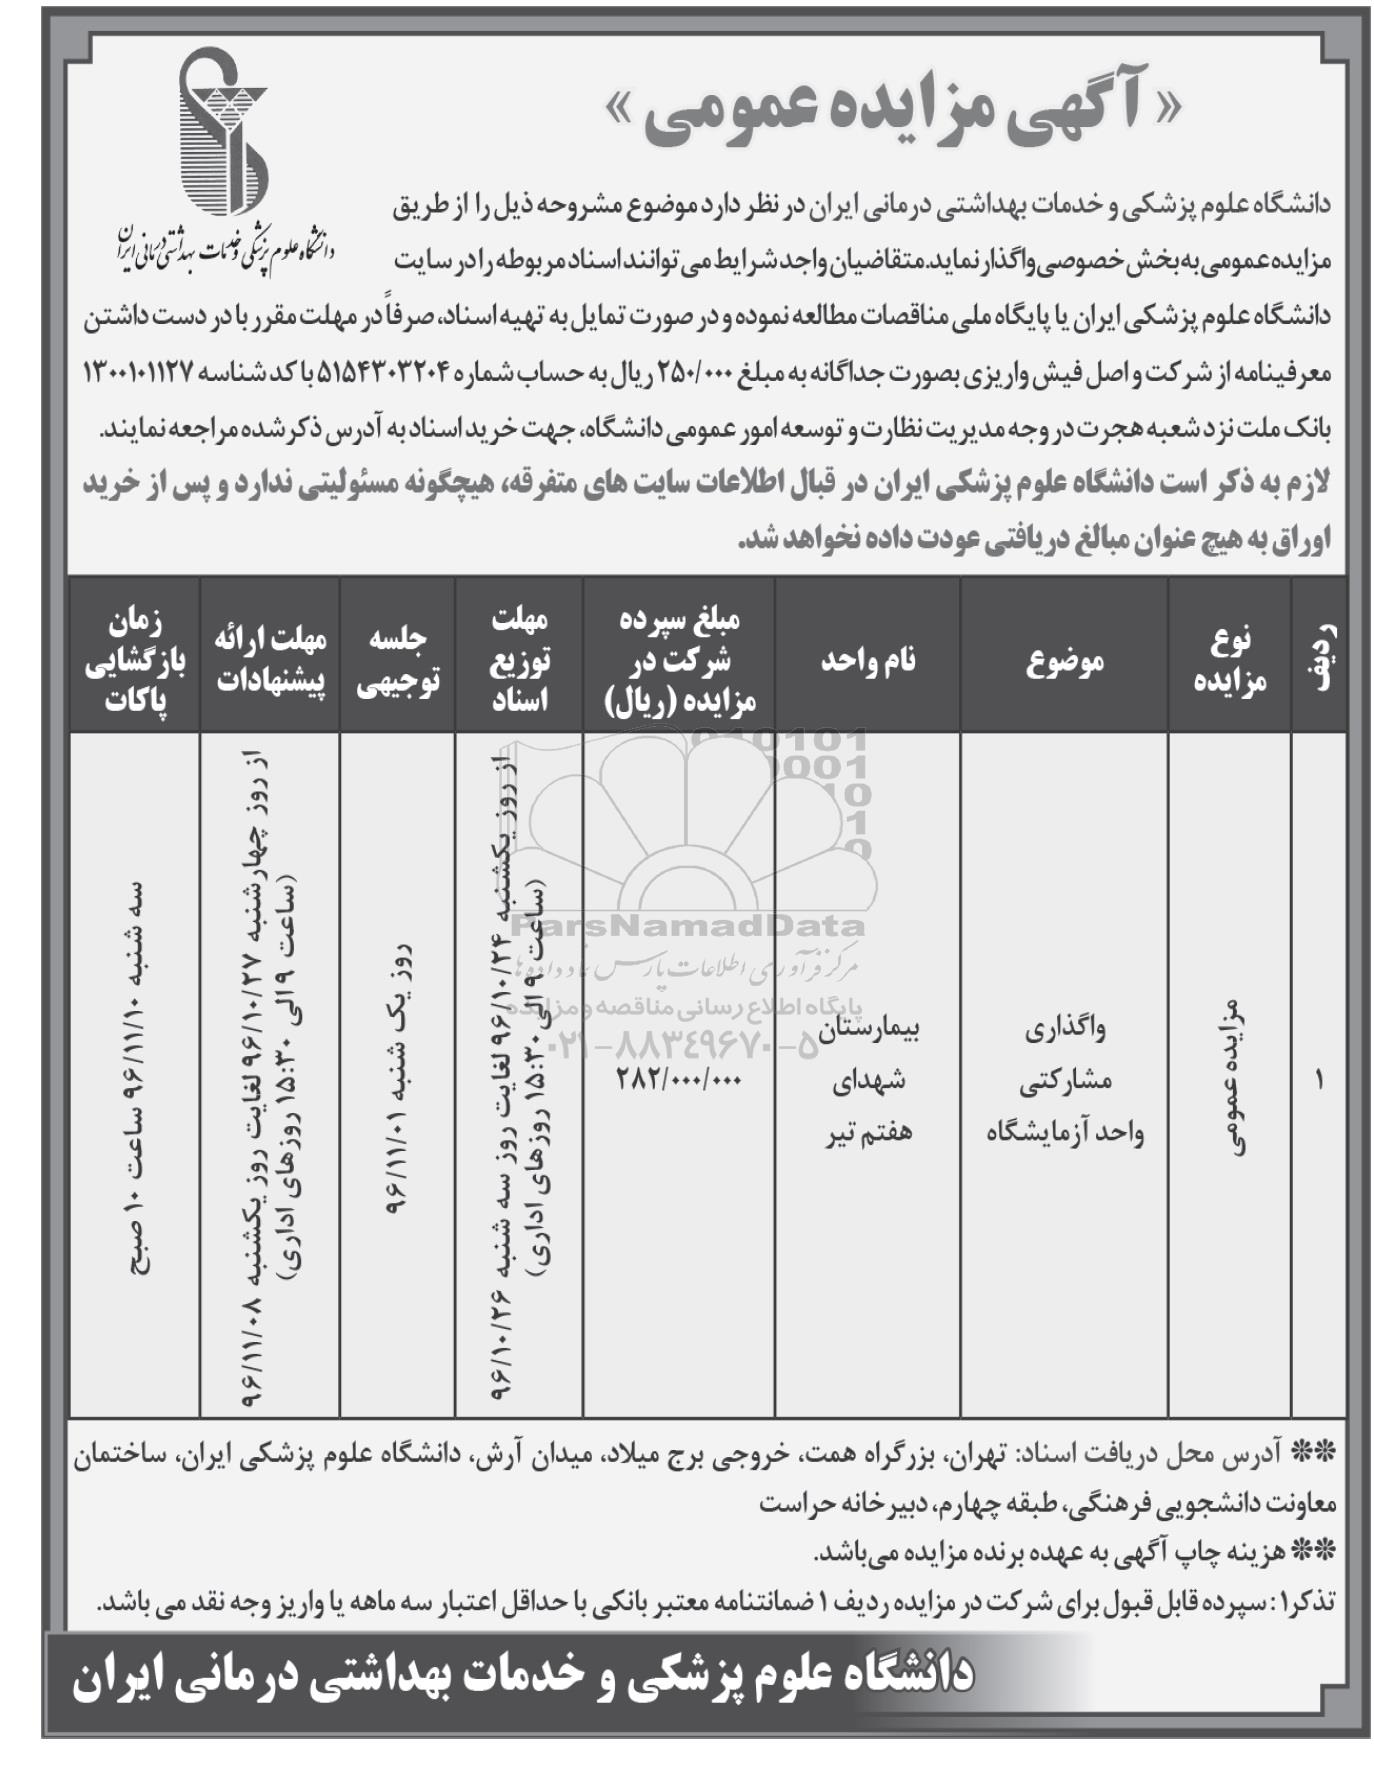 « آگهی مزایده عمومی »
دانشگاه علوم پزشکی و خدمات بهداشتی درمانی ایران
دانشگاه علوم پزشکی و خدمات بهداشتی درمانی ایران در نظر دارد موضوع مشروحه ذیل را از طریق
مزایده عمومی به بخش خصوصی واگذار نماید. متقاضیان واجد شرایط می توانند اسناد مربوطه را در سایت
دانشگاه علوم پزشکی ایران یا پایگاه ملی مناقصات مطالعه نموده و در صورت تمایل به تهیه اسناد، صرفاً در مهلت مقرر با در دست داشتن
معرفینامه از شرکت و اصل فیش واریزی بصورت جداگانه به مبلغ ۲۵۰/۰۰۰ ریال به حساب شماره ۵۱۵۴۳۰۳۲۰۴ با کد شناسه ۱۳۰۰۱۰۱۱۲۷
بانک ملت نزد شعبه هجرت در وجه مدیریت نظارت و توسعه امور عمومی دانشگاه، جهت خرید اسناد به آدرس ذکر شده مراجعه نمایند.
لازم به ذکر است دانشگاه علوم پزشکی ایران در قبال اطلاعات سایت های متفرقه، هیچگونه مسئولیتی ندارد و پس از خرید
اوراق به هیچ عنوان مبالغ دریافتی عودت داده نخواهد شد.
ردیف
نوع
مزایده
موضوع
نام واحد
مبلغ سپرده
شرکت در
مزایده (ریال)
مهلت
توزیع
اسناد
جلسه
توجیهی
مهلت ارائه
پیشنهادات
زمان
بازگشایی
پاکات
۱
مزایده عمومی
واگذاری
مشارکتی
واحد آزمایشگاه
بیمارستان
شهدای
هفتم تیر
۲۸۲/۰۰۰/۰۰۰
از روز یکشنبه ۹۶/۱۰/۲۴ لغایت روز سه شنبه ۹۶/۱۰/۲۶
(ساعت ۹ الی ۱۵:۳۰ روزهای اداری)
روز یک شنبه ۹۶/۱۱/۰۱
از روز چهارشنبه ۹۶/۱۰/۲۷ لغایت روز یکشنبه ۹۶/۱۱/۰۸
(ساعت ۹ الی ۱۵:۳۰ روزهای اداری)
سه شنبه ۹۶/۱۱/۱۰ ساعت ۱۰ صبح
ParsNamadData
مرکز فرآوری اطلاعات پارس نماد داده ها
پایگاه اطلاع رسانی مناقصه و مزایده
۰۲۱-۸۸۳۴۹۶۷۰-۵
** آدرس محل دریافت اسناد: تهران، بزرگراه همت، خروجی برج میلاد، میدان آرش، دانشگاه علوم پزشکی ایران، ساختمان
معاونت دانشجویی فرهنگی، طبقه چهارم، دبیرخانه حراست
** هزینه چاپ آگهی به عهده برنده مزایده می‌باشد.
تذکر۱: سپرده قابل قبول برای شرکت در مزایده ردیف ۱ ضمانتنامه معتبر بانکی با حداقل اعتبار سه ماهه یا واریز وجه نقد می باشد.
دانشگاه علوم پزشکی و خدمات بهداشتی درمانی ایران